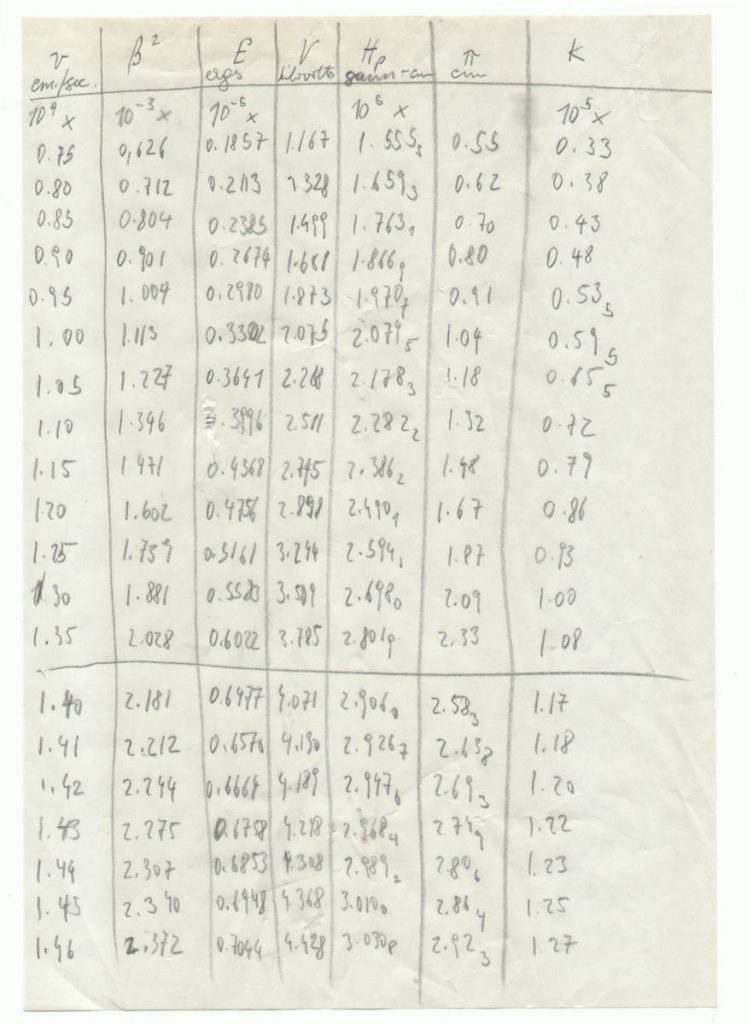 v β² E V Hρ π K
cm./sec. ergs kilovolts gauss-cm cm
10⁹ x 10⁻³ x 10⁻⁵ x 10⁶ x 10⁻⁵ x
0.75 0,626 0.1857 1.167 1.555₅ 0.55 0.33
0.80 0.712 0.2113 1.328 1.659₃ 0.62 0.38
0.85 0.804 0.2385 1.499 1.763₁ 0.70 0.43
0.90 0.901 0.2674 1.681 1.866₉ 0.80 0.48
0.95 1.004 0.2980 1.873 1.970₇ 0.91 0.53₅
1.00 1.113 0.3302 2.075 2.074₅ 1.04 0.59₅
1.05 1.227 0.3641 2.288 2.178₃ 1.18 0.65₅
1.10 1.346 .3996 2.511 2.282₂ 1.32 0.72
1.15 1.471 0.4368 2.745 2.386₂ 1.48 0.79
1.20 1.602 0.4756 2.490₁ 1.67 0.86
1.25 1.739 0.5161 3.244 2.594₁ 1.87 0.93
1.30 1.881 0.5583 3.509 2.698₀ 2.09 1.00
1.35 2.028 0.6022 3.785 2.801₉ 2.33 1.08
1.40 2.181 0.6477 4.071 2.906₀ 2.58₃ 1.17
1.41 2.212 0.6570 4.130 2.926₇ 2.63₈ 1.18
1.42 2.244 0.6664 4.189 2.947₆ 2.69₃ 1.20
1.43 2.275 0.6758 4.248 2.968₄ 2.74₉ 1.22
1.44 2.307 0.6853 4.308 2.989₂ 2.80₆ 1.23
1.45 2.340 0.6948 4.368 3.010₀ 2.86₄ 1.25
1.46 2.372 0.7044 4.428 3.030₈ 2.92₃ 1.27